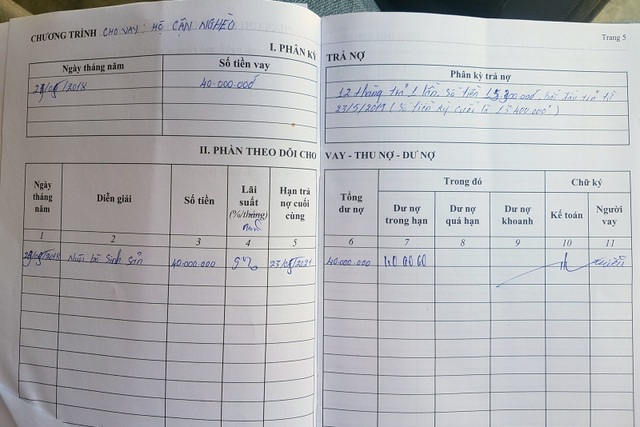 CHƯƠNG TRÌNH CHO VAY: HỘ CẬN NGHÈO
I. PHÂN KỲ
Ngày tháng năm Số tiền vay
40.000.000đ
II. PHẦN THEO DÕI CHO
Ngày tháng năm Diễn giải Số tiền Lãi suất (%/tháng) năm Hạn trả nợ cuối cùng
1 2 3 4 5
Nuôi bò sinh sản 40.000.000 9%
Trang 5
TRẢ NỢ
Phân kỳ trả nợ
12 tháng trả 1 lần, số tiền bắt đầu trả từ
23/5/2019 (Số tiền kỳ cuối là 13.400.000đ)
VAY - THU NỢ - DƯ NỢ
Tổng dư nợ Trong đó Chữ ký
Dư nợ trong hạn Dư nợ quá hạn Dư nợ khoanh Kế toán Người vay
6 7 8 9 10 11
40.000.000